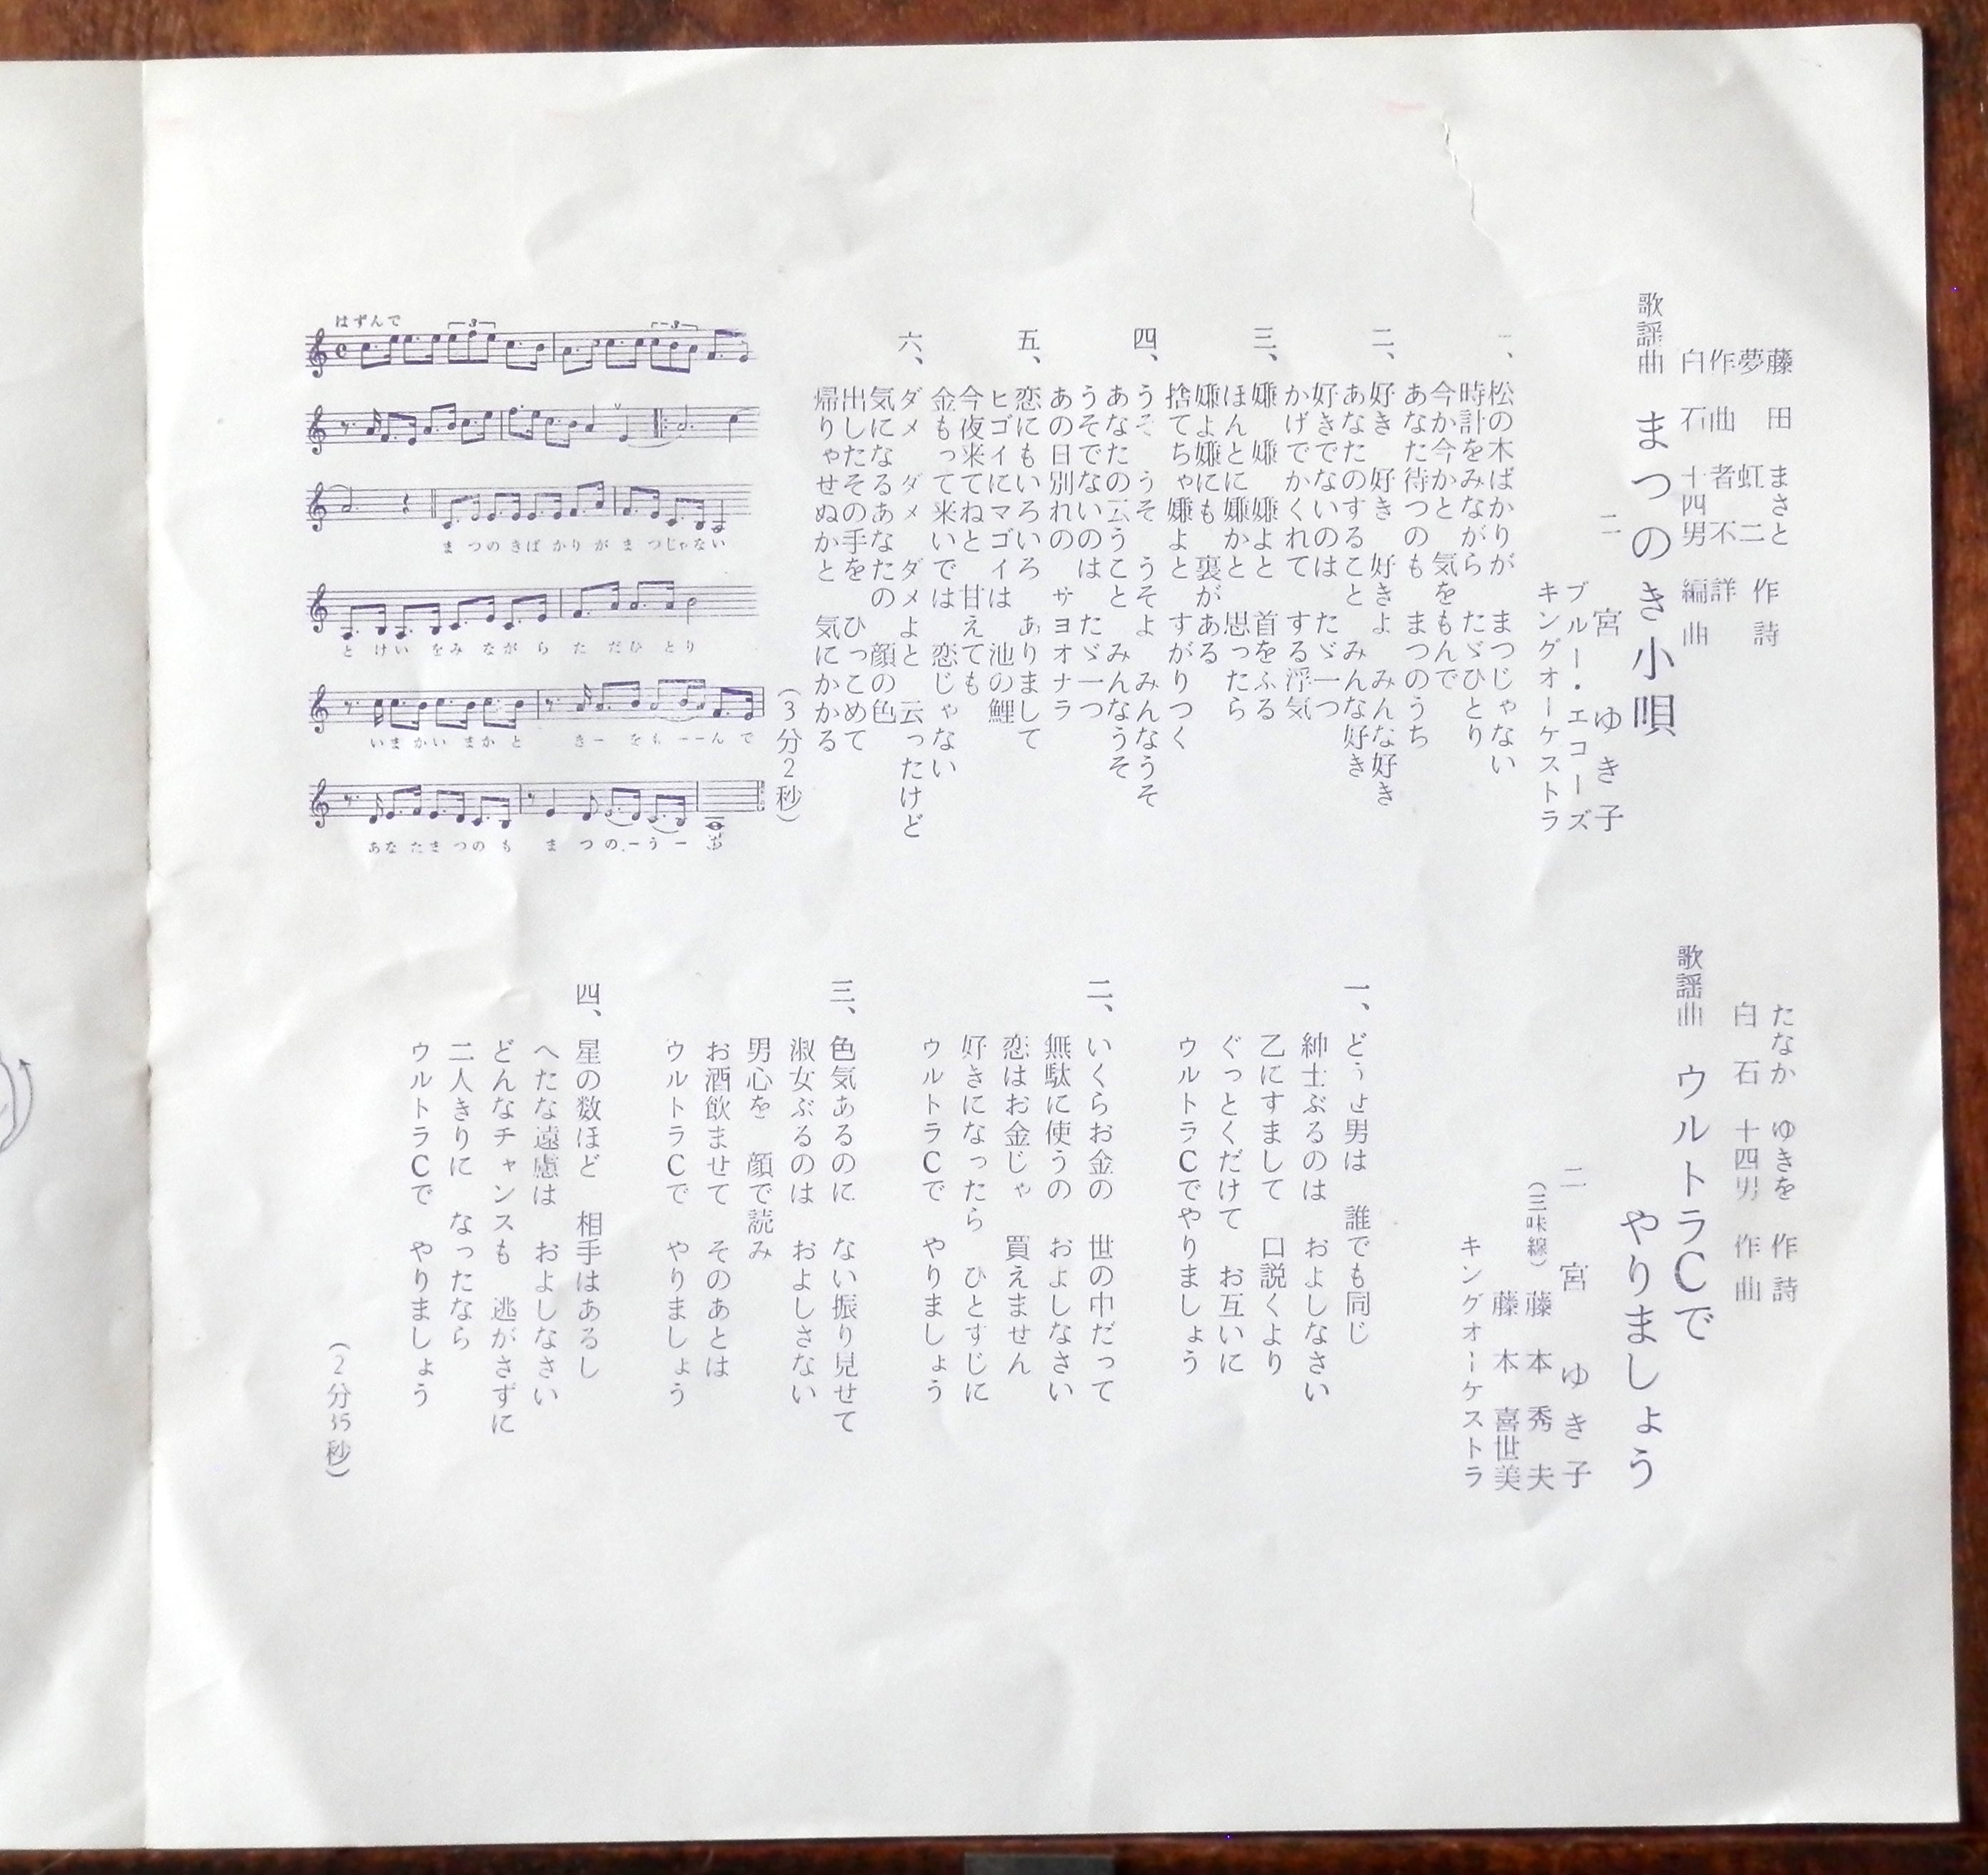 藤田まさと 作詩
夢虹二
作曲者不詳
白石十四男 編曲
歌謡曲 まつのき小唄
二宮ゆき子
ブルー・エコーズ
キングオーケストラ
一、松の木ばかりが まつじゃない
時計をみながら たゞひとり
今か今かと 気をもんで
あなた待つのも まつのうち
二、好き 好き 好きよ みんな好き
あなたのすること みんな好き
好きでないのは たゞ一つ
かげでかくれて する浮気
三、嫌 嫌 嫌よと 首をふる
ほんとに嫌かと 思ったら
嫌よ嫌にも 裏がある
捨てちゃ嫌よと すがりつく
四、うそ うそ うそよ みんなうそ
あなたの云うこと みんなうそ
うそでないのは たゞ一つ
あの日別れの サヨオナラ
五、恋にもいろいろ ありまして
ヒゴイにマゴイは 池の鯉
今夜来てねと 甘えても
金もって来いでは 恋じゃない
六、ダメ ダメ ダメよと 云ったけど
気になるあなたの 顔の色
出したその手を ひっこめて
帰りゃせぬかと 気にかかる
(3分2秒)
はずんで
3 3
まつのきばかりが まつじゃない
とけいをみながら ただひとり
いまかいまかと きーをもーーんで
あなたまつのも まつのーうー
ち
たなか ゆきを 作詩
白石十四男 作曲
歌謡曲 ウルトラCで
やりましょう
二宮ゆき子
(三味線) 藤本秀夫
藤本喜世美
キングオーケストラ
一、どうせ男は 誰でも同じ
紳士ぶるのは およしなさい
乙にすまして 口説くより
ぐっとくだけて お互いに
ウルトラCでやりましょう
二、いくらお金の 世の中だって
無駄に使うの およしなさい
恋はお金じゃ 買えません
好きになったら ひとすじに
ウルトラCで やりましょう
三、色気あるのに ない振り見せて
淑女ぶるのは およしさない
男心を 顔で読み
お酒飲ませて そのあとは
ウルトラCで やりましょう
四、星の数ほど 相手はあるし
へたな遠慮は およしなさい
どんなチャンスも 逃がさずに
二人きりに なったなら
ウルトラCで やりましょう
(2分35秒)